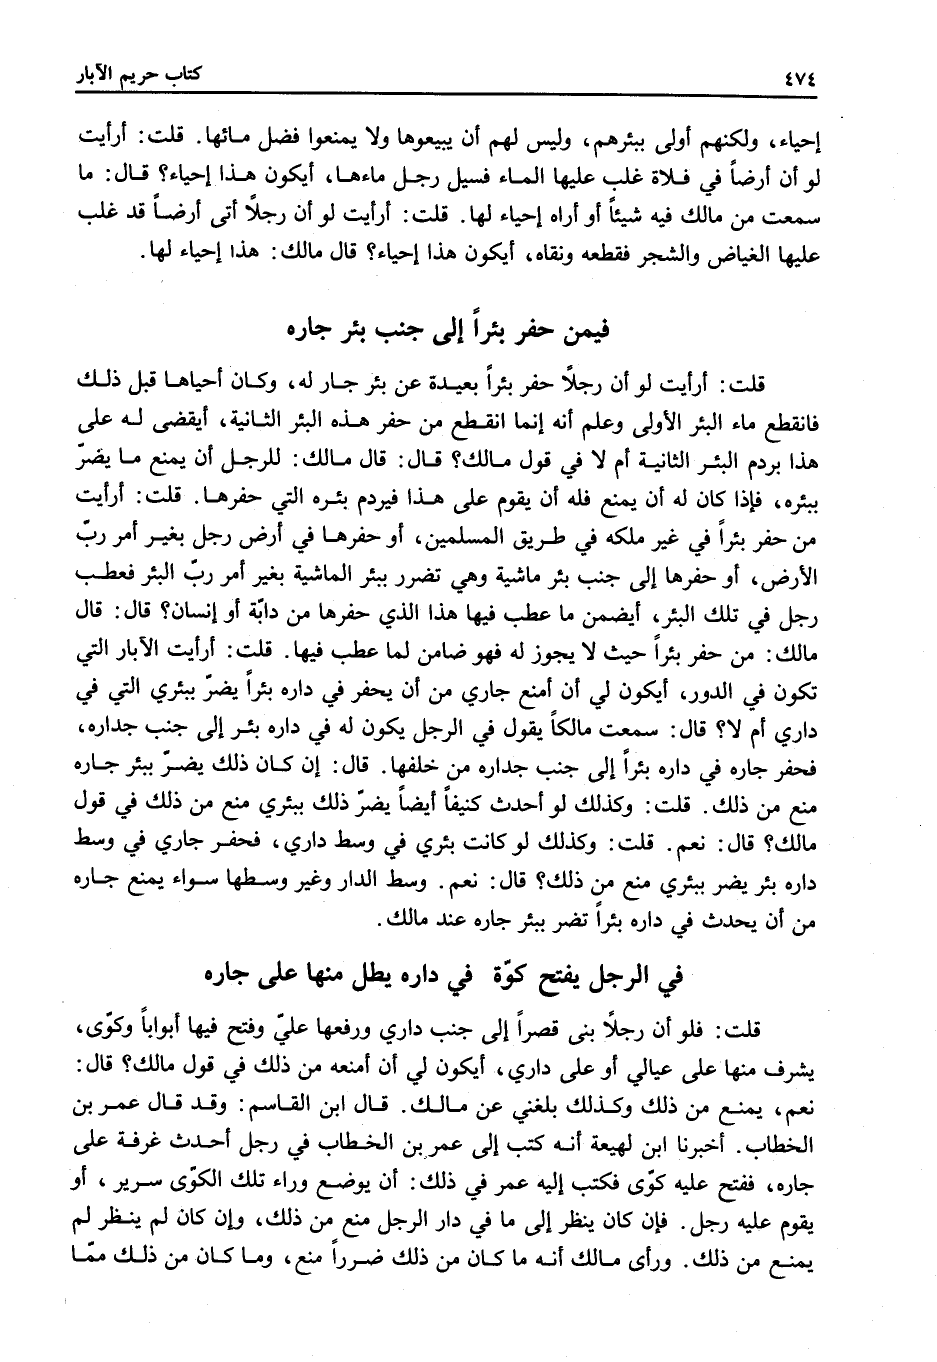 ٤٧٤ كتاب حريم الآبار
إحياء، ولكنهم أولى ببئرهم، وليس لهم أن يبيعوها ولا يمنعوا فضل مائها. قلت: أرأيت
لو أن أرضاً في فلاة غلب عليها الماء فسيل رجل ماءها، أيكون هذا إحياء؟ قال: ما
سمعت من مالك فيه شيئاً أو أراه إحياء لها. قلت: أرأيت لو أن رجلاً أتى أرضاً قد غلب
عليها الغياض والشجر فقطعه ونقاه، أيكون هذا إحياء؟ قال مالك: هذا إحياء لها.
فيمن حفر بئراً إلى جنب بئر جاره
قلت: أرأيت لو أن رجلاً حفر بئراً بعيدة عن بئر جار له، وكان أحياها قبل ذلك
فانقطع ماء البئر الأولى وعلم أنه إنما انقطع من حفر هذه البئر الثانية، أيقضى له على
هذا بردم البئر الثانية أم لا في قول مالك؟ قال: قال مالك: للرجل أن يمنع ما يضرّ
ببئره، فإذا كان له أن يمنع فله أن يقوم على هذا فيردم بئره التي حفرها. قلت: أرأيت
من حفر بئراً في غير ملكه في طريق المسلمين، أو حفرها في أرض رجل بغير أمر ربّ
الأرض، أو حفرها إلى جنب بئر ماشية وهي تضرر ببئر الماشية بغير أمر ربّ البئر فعطب
رجل في تلك البئر، أيضمن ما عطب فيها هذا الذي حفرها من دابّة أو إنسان؟ قال: قال
مالك: من حفر بئراً حيث لا يجوز له فهو ضامن لما عطب فيها. قلت: أرأيت الآبار التي
تكون في الدور، أيكون لي أن أمنع جاري من أن يحفر في داره بئراً يضرّ ببئري التي في
داري أم لا؟ قال: سمعت مالكاً يقول في الرجل يكون له في داره بئر إلى جنب جداره،
فحفر جاره في داره بئراً إلى جنب جداره من خلفها. قال: إن كان ذلك يضرّ ببئر جاره
منع من ذلك. قلت: وكذلك لو أحدث كنيفاً أيضاً يضرّ ذلك ببئري منع من ذلك في قول
مالك؟ قال: نعم. قلت: وكذلك لو كانت بئري في وسط داري، فحفر جاري في وسط
داره بئر يضر ببئري منع من ذلك؟ قال: نعم. وسط الدار وغير وسطها سواء يمنع جاره
من أن يحدث في داره بئراً تضر ببئر جاره عند مالك.
في الرجل يفتح كوّة في داره يطل منها على جاره
قلت: فلو أن رجلاً بنى قصراً إلى جنب داري ورفعها عليّ وفتح فيها أبواباً وكوّى،
يشرف منها على عيالي أو على داري، أيكون لي أن أمنعه من ذلك في قول مالك؟ قال:
نعم، يمنع من ذلك وكذلك بلغني عن مالك. قال ابن القاسم: وقد قال عمر بن
الخطاب. أخبرنا ابن لهيعة أنه كتب إلى عمر بن الخطاب في رجل أحدث غرفة على
جاره، ففتح عليه كوّى فكتب إليه عمر في ذلك: أن يوضع وراء تلك الكوّى سرير، أو
يقوم عليه رجل. فإن كان ينظر إلى ما في دار الرجل منع من ذلك، وإن كان لم ينظر لم
يمنع من ذلك. ورأى مالك أنه ما كان من ذلك ضرراً منع، وما كان من ذلك ممّا